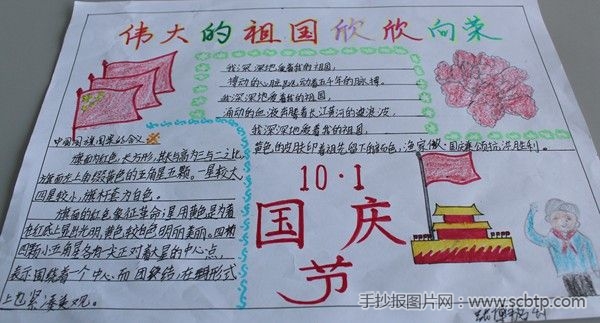 伟大的祖国欣欣向荣
我深深地爱着我的祖国,
搏动的心脏见动着五千年的脉搏。
我深深地爱着我的祖国,
涌动的血液奔腾着长江黄河的波浪
我深深地爱着我的祖国,
黄色的皮肤印着祖先留下的颜色,
渔家傲·国庆
中国国旗图案的含义
旗面为红色,长方形,其长与高为三与二之比,
旗面左上角缀黄色的五角星五颗。一星较大,
四星较小,旗杆套为白色。
旗面的红色象征革命,星用黄色是为着
在红地上显出光明,黄色较白色明亮美丽。四颗
小五角星各有一尖正对着大星的中心点,
表示围绕着一个中心而团结,在形式
上也紧凑美观。
10·1
国庆
节
手抄报图片网——www.scbtp.com